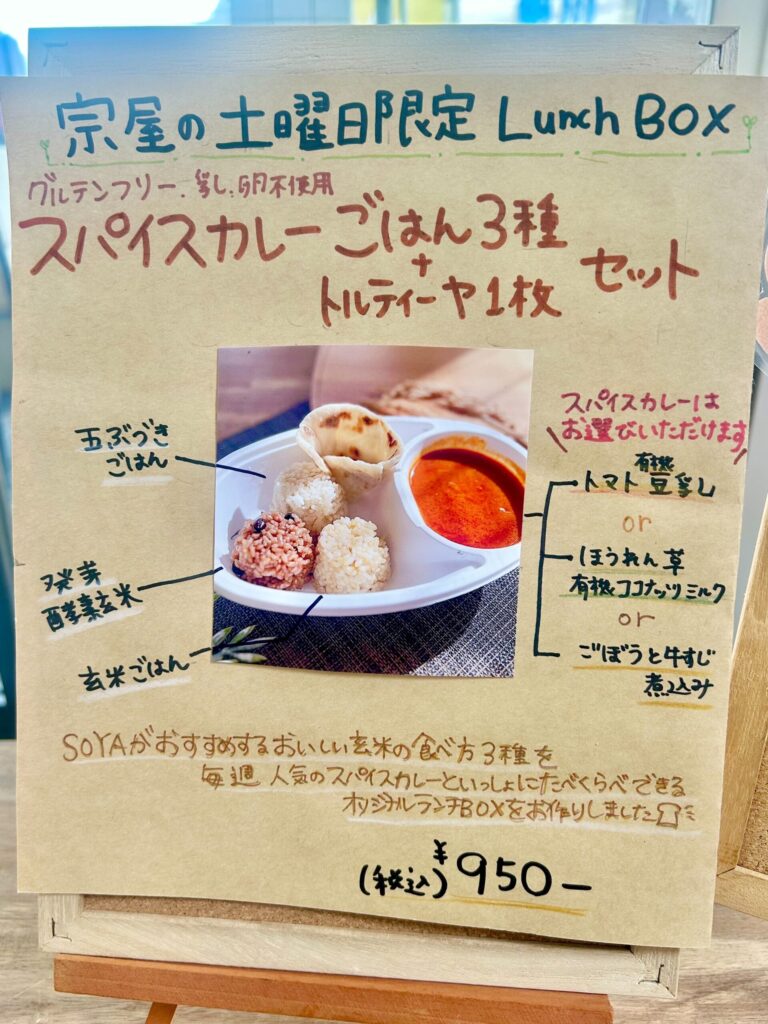 宗屋の土曜日限定 Lunch BOX
グルテンフリー、乳し、卵不使用
スパイスカレー ごはん3種
+
トルティーヤ1枚
セット
スパイスカレーは
お選びいただけます
五ぶづき
ごはん
発芽
酵素玄米
玄米ごはん
有機
トマト豆乳し
or
ほうれん草
有機ココナッツミルク
or
ごぼうと牛すじ
煮込み
SOYAがおすすめするおいしい玄米の食べ方3種を
毎週 人気のスパイスカレーといっしょにたべくらべできる
オリジナルランチBOXをお作りしました
(税込) ¥950-